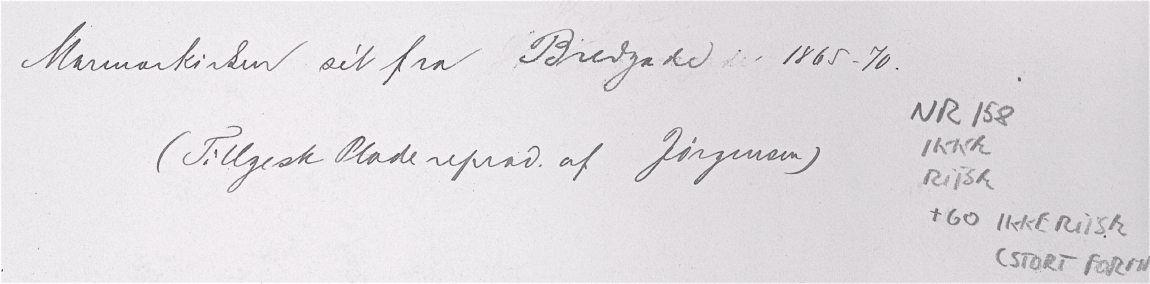 Marmorkirken sét fra Bredgade 1865-70.
(Tillge Plade reprod. af Jørgensen)
NR 158
IKKE
+60 IKKE
(STORT FORM